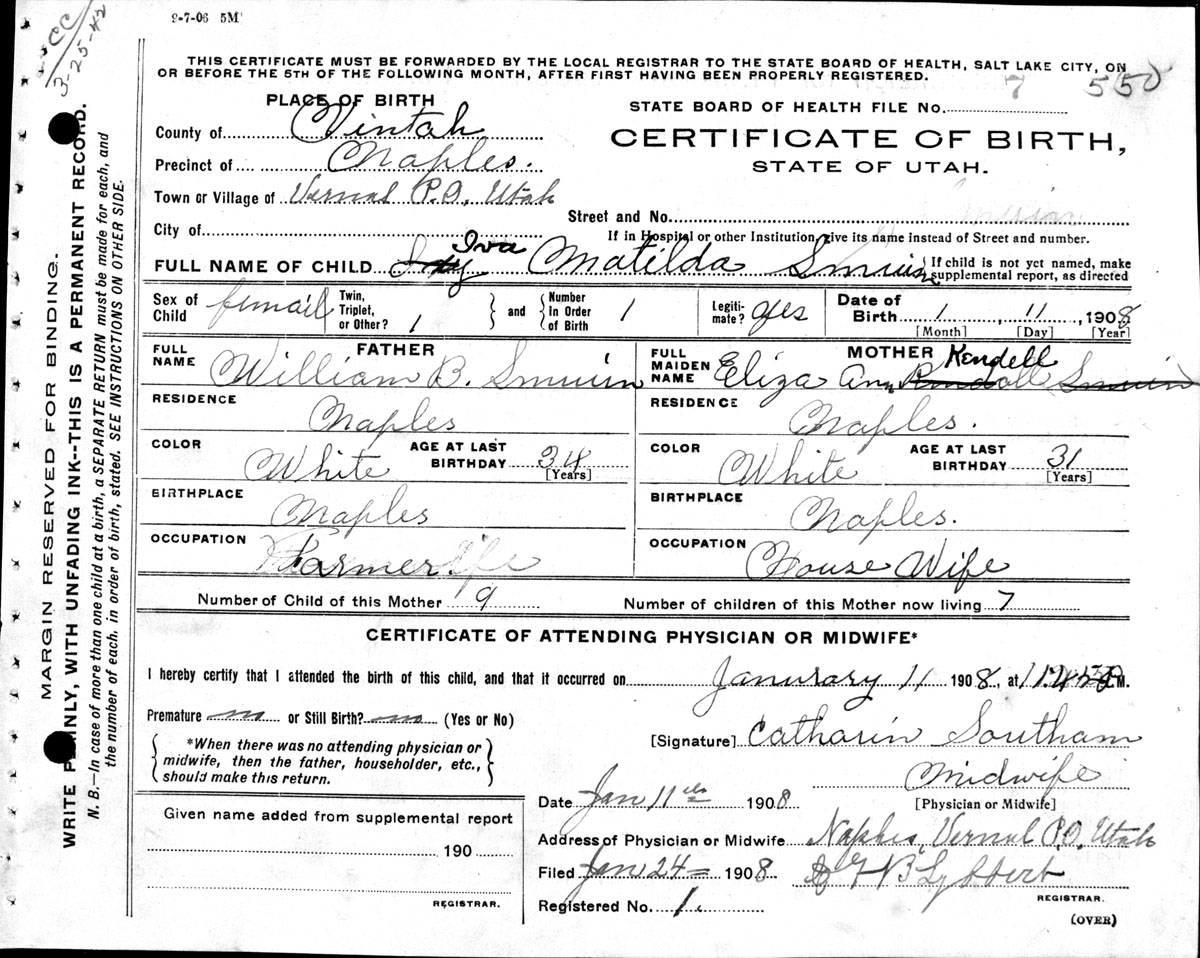 CC
3-25-42
9-7-06 5M
THIS CERTIFICATE MUST BE FORWARDED BY THE LOCAL REGISTRAR TO THE STATE BOARD OF HEALTH, SALT LAKE CITY, ON
OR BEFORE THE 5TH OF THE FOLLOWING MONTH, AFTER FIRST HAVING BEEN PROPERLY REGISTERED.
MARGIN RESERVED FOR BINDING.
WRITE PLAINLY, WITH UNFADING INK--THIS IS A PERMANENT RECORD.
N. B.—In case of more than one child at a birth, a SEPARATE RETURN must be made for each, and
the number of each, in order of birth, stated. SEE INSTRUCTIONS ON OTHER SIDE.
PLACE OF BIRTH
STATE BOARD OF HEALTH FILE No. 7 550
County of Uintah
CERTIFICATE OF BIRTH,
Precinct of Naples.
STATE OF UTAH.
Town or Village of Vernal P.O. Utah
Street and No.
City of
If in Hospital or other Institution, give its name instead of Street and number.
FULL NAME OF CHILD Iva Matilda Smuin
{If child is not yet named, make
supplemental report, as directed
Sex of Child femail
Twin, Triplet, or Other? 1
and
Number In Order of Birth 1
Legiti-mate? yes
Date of Birth 1 11, 1908
[Month] [Day] [Year]
FULL NAME FATHER William B. Smuin
FULL MAIDEN NAME MOTHER Eliza Ann Kendell Smuin
RESIDENCE Naples
RESIDENCE Naples.
COLOR White AGE AT LAST BIRTHDAY 34 [Years]
COLOR White AGE AT LAST BIRTHDAY 31 [Years]
BIRTHPLACE Naples
BIRTHPLACE Naples.
OCCUPATION Farmer.
OCCUPATION House Wife
Number of Child of this Mother 9
Number of children of this Mother now living 7
CERTIFICATE OF ATTENDING PHYSICIAN OR MIDWIFE*
I hereby certify that I attended the birth of this child, and that it occurred on Janurary 11 1908, at M.
Premature no or Still Birth? no (Yes or No)
*When there was no attending physician or
midwife, then the father, householder, etc.,
should make this return.
[Signature] Catharin Southam
Midwife
[Physician or Midwife]
Date Jan 11 1908
Given name added from supplemental report
190
REGISTRAR.
Address of Physician or Midwife Naples, Vernal P.O. Utah
Filed Jan 24 1908 Lybbert
REGISTRAR.
Registered No. 1.
(OVER)